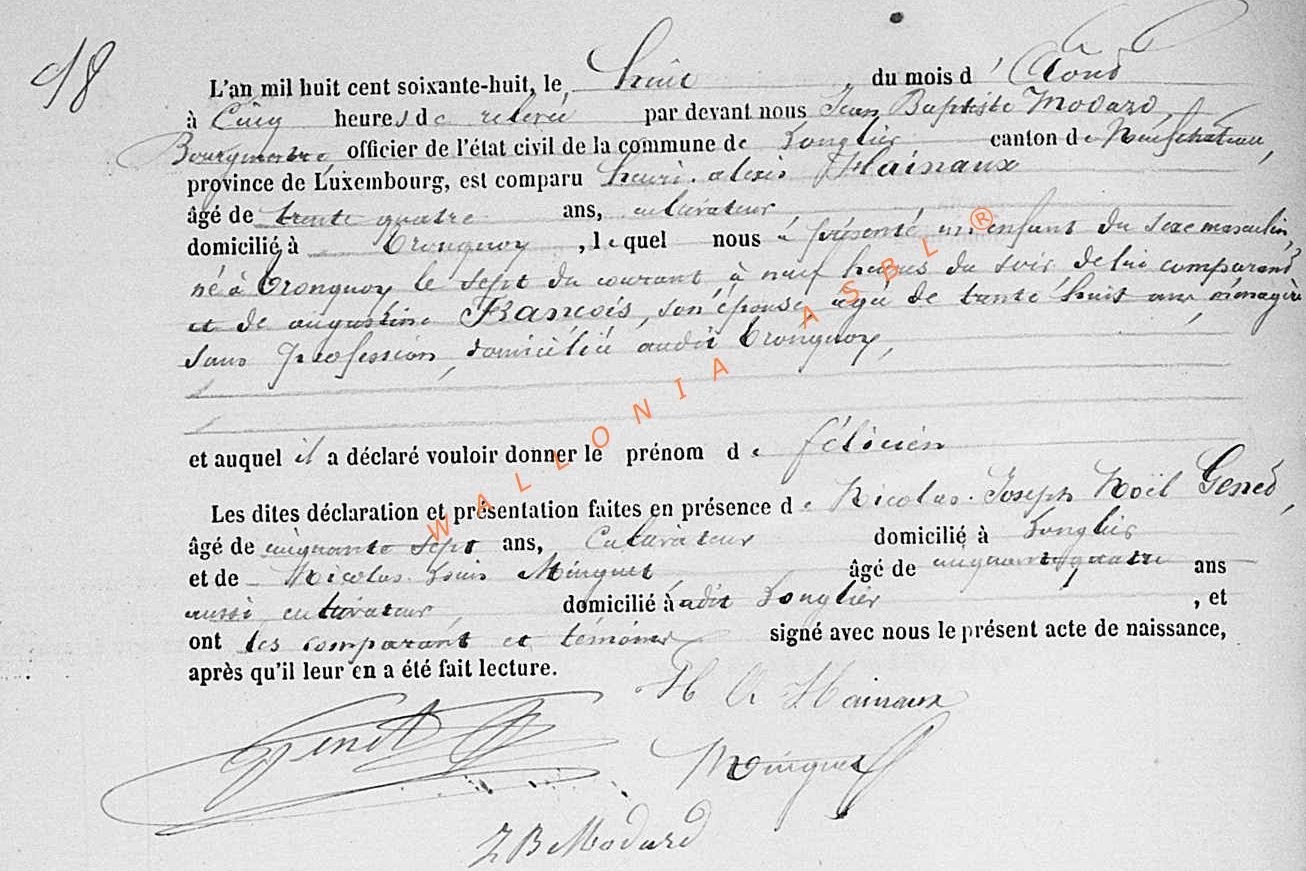 98
L'an mil huit cent soixante-huit, le huit du mois d'Août
à Cinq heures de relevée par devant nous Jean Baptiste Modard,
Bourgmestre, officier de l'état civil de la commune de Longlier canton de Neufchateau,
province de Luxembourg, est comparu henri-alexis Hainaux
âgé de trente quatre ans, cultivateur
domicilié à Tronquoy, lequel nous a présenté un enfant du sexe masculin,
né à Tronquoy le sept du courant, à neuf heures du soir de lui comparant
et de augustine François, son épouse, agée de trente huit ans, ménagère
sans profession, domiciliée audit Tronquoy,
et auquel il a déclaré vouloir donner le prénom de félicien
Les dites déclaration et présentation faites en présence de Nicolas-Joseph Noël Genet,
âgé de cinquante sept ans, Cultivateur domicilié à Longlier
et de Nicolas-Louis Minguet âgé de cinquante quatre ans
aussi cultivateur, domicilié à dit Longlier, et
ont les comparant et témoins signé avec nous le présent acte de naissance,
après qu'il leur en a été fait lecture.
H A Hainaux
Genet
Minguet
J B Modard
WALLONIA ASBL ®